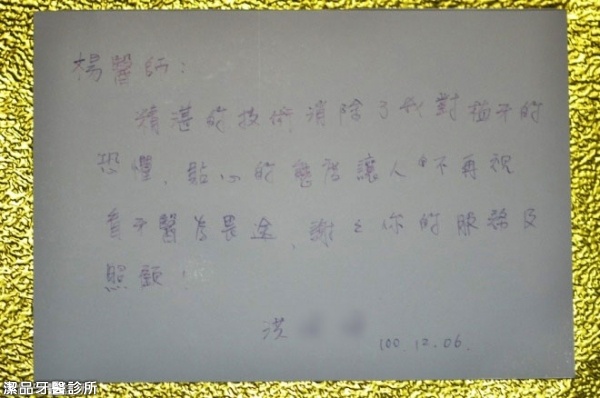 楊醫師：
精湛的技術消除了我對植牙的
恐懼，貼心的態度讓人不再視
看牙醫為畏途，謝々你的服務及
照顧！
洪
100.12.06.
潔品牙醫診所